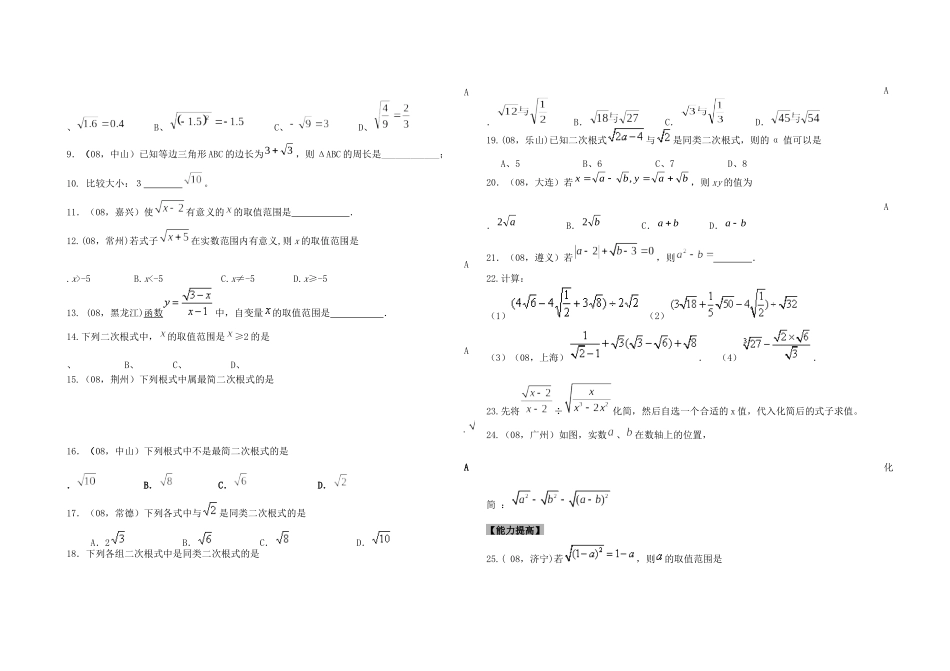 A
、√1.6=0.4 B、√(-1.5)²=-1.5 C、√-9=3 D、√(4/9)=2/3
9. (08，中山）已知等边三角形 ABC 的边长为3+√3，则 ΔABC 的周长是____________；
10. 比较大小：3 ________ √10。
11. （08，嘉兴）使√x-2有意义的x的取值范围是____________.
12.(08，常州)若式子√x+5在实数范围内有意义,则 x 的取值范围是
A
.x>-5 B.x<-5 C.x≠-5 D.x≥-5
13. (08，黑龙江)函数y=√3-x/x-1 中，自变量x的取值范围是___________.
14.下列二次根式中，x的取值范围是x≥2的是
A
、 B、 C、 D、
15.（08，荆州）下列根式中属最简二次根式的是
.√
16.（08，中山）下列根式中不是最简二次根式的是
A
.√10 B.√8 C.√6 D.√2
17.（08，常德）下列各式中与√2是同类二次根式的是
A．2√3 B．√6 C．√8 D．√10
18. 下列各组二次根式中是同类二次根式的是
A
.√12与√(1/2) B．√18与√27 C．√3与√(1/3) D．√45与√54
19.(08，乐山)已知二次根式√2a-4与√2是同类二次根式，则的α值可以是
A、5 B、6 C、7 D、8
20.（08，大连）若x=√a-√b,y=√a+√b，则 xy的值为
A
.2√a B．2√b C．a+b D．a-b
21. （08，遵义）若|a-2|+√b-3=0，则a²-b=________.
22.计算：
（1）(4√6-4√(1/2)+3√8)÷2√2 （2）(3√18+1/5√50-4√(1/2))÷√32
（3）（08，上海）1/√2-1+√3(√3-√6)+√8． （4）∛27-√2×√6/√3．
23.先将√x-2/x-2÷√(x/x³-2x²)化简，然后自选一个合适的 x 值，代入化简后的式子求值。
24.（08，广州）如图，实数a、b在数轴上的位置，
化
简 ：√a²-√b²-√(a-b)²
【能力提高】
25.( 08，济宁)若√(1-a)²=1-a，则a的取值范围是